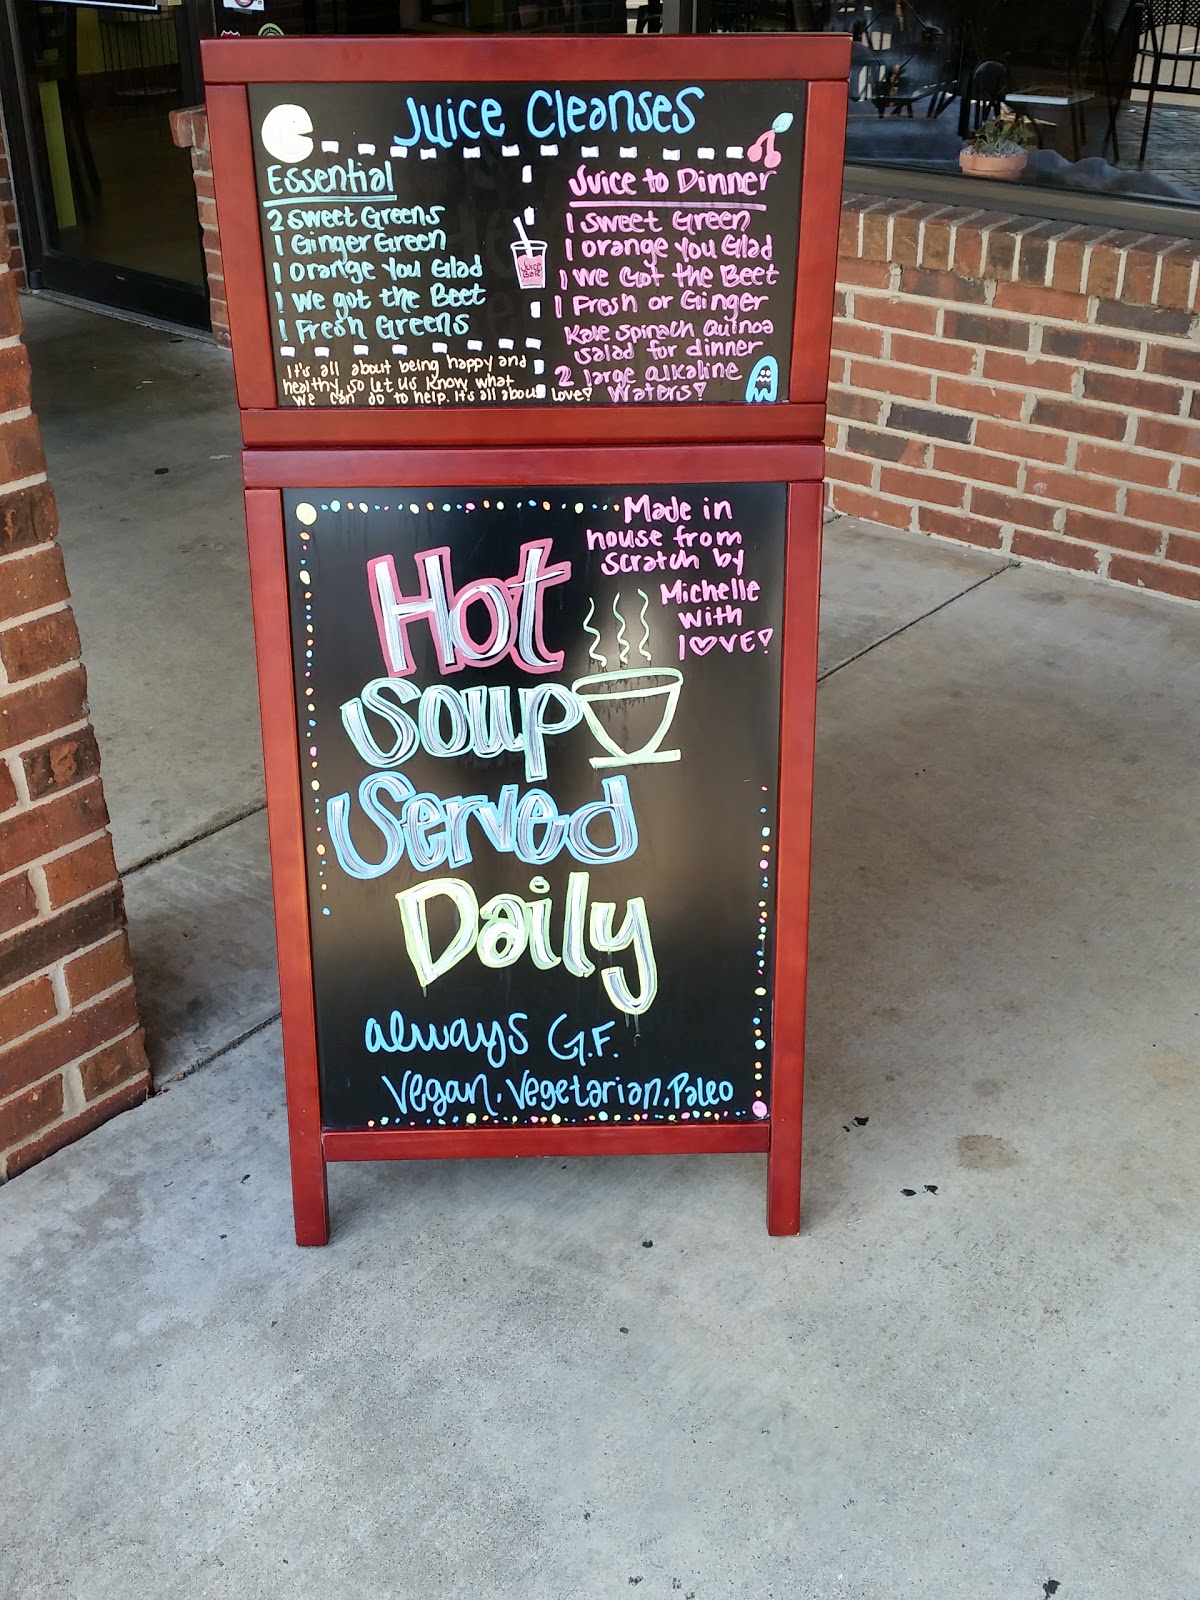 Juice Cleanses
Essential
2 Sweet Greens
1 Ginger Green
1 Orange You Glad
1 We got the Beet
1 Fresh Greens
It's all about being happy and
healthy, so let us know what
we can do to help. It's all about love!
Juice Bar
Juice to Dinner
1 Sweet Green
1 Orange You Glad
1 We Got the Beet
1 Fresh or Ginger
Kale Spinach Quinoa
Salad for dinner
2 large alkaline
Waters!
Made in
house from
scratch by
Michelle
with
LOVE!
Hot
Soup
Served
Daily
always G.F.
Vegan, Vegetarian, Paleo